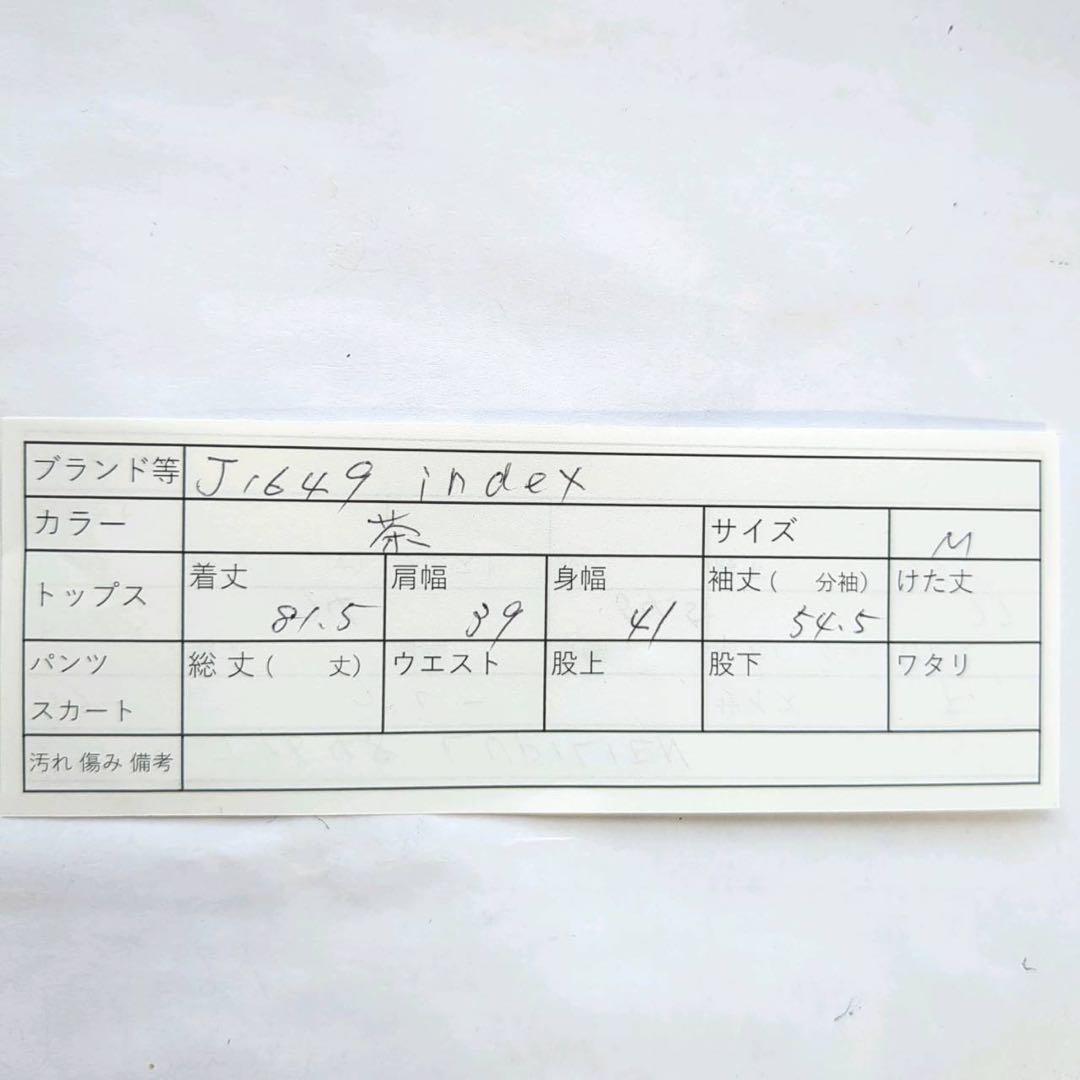 ブランド等 J1649 index
カラー 茶 サイズ M
トップス 着丈 81.5 肩幅 39 身幅 41 袖丈( 分袖) 54.5 けた丈
パンツ スカート 総丈( 丈) ウエスト 股上 股下 ワタリ
汚れ 傷み 備考